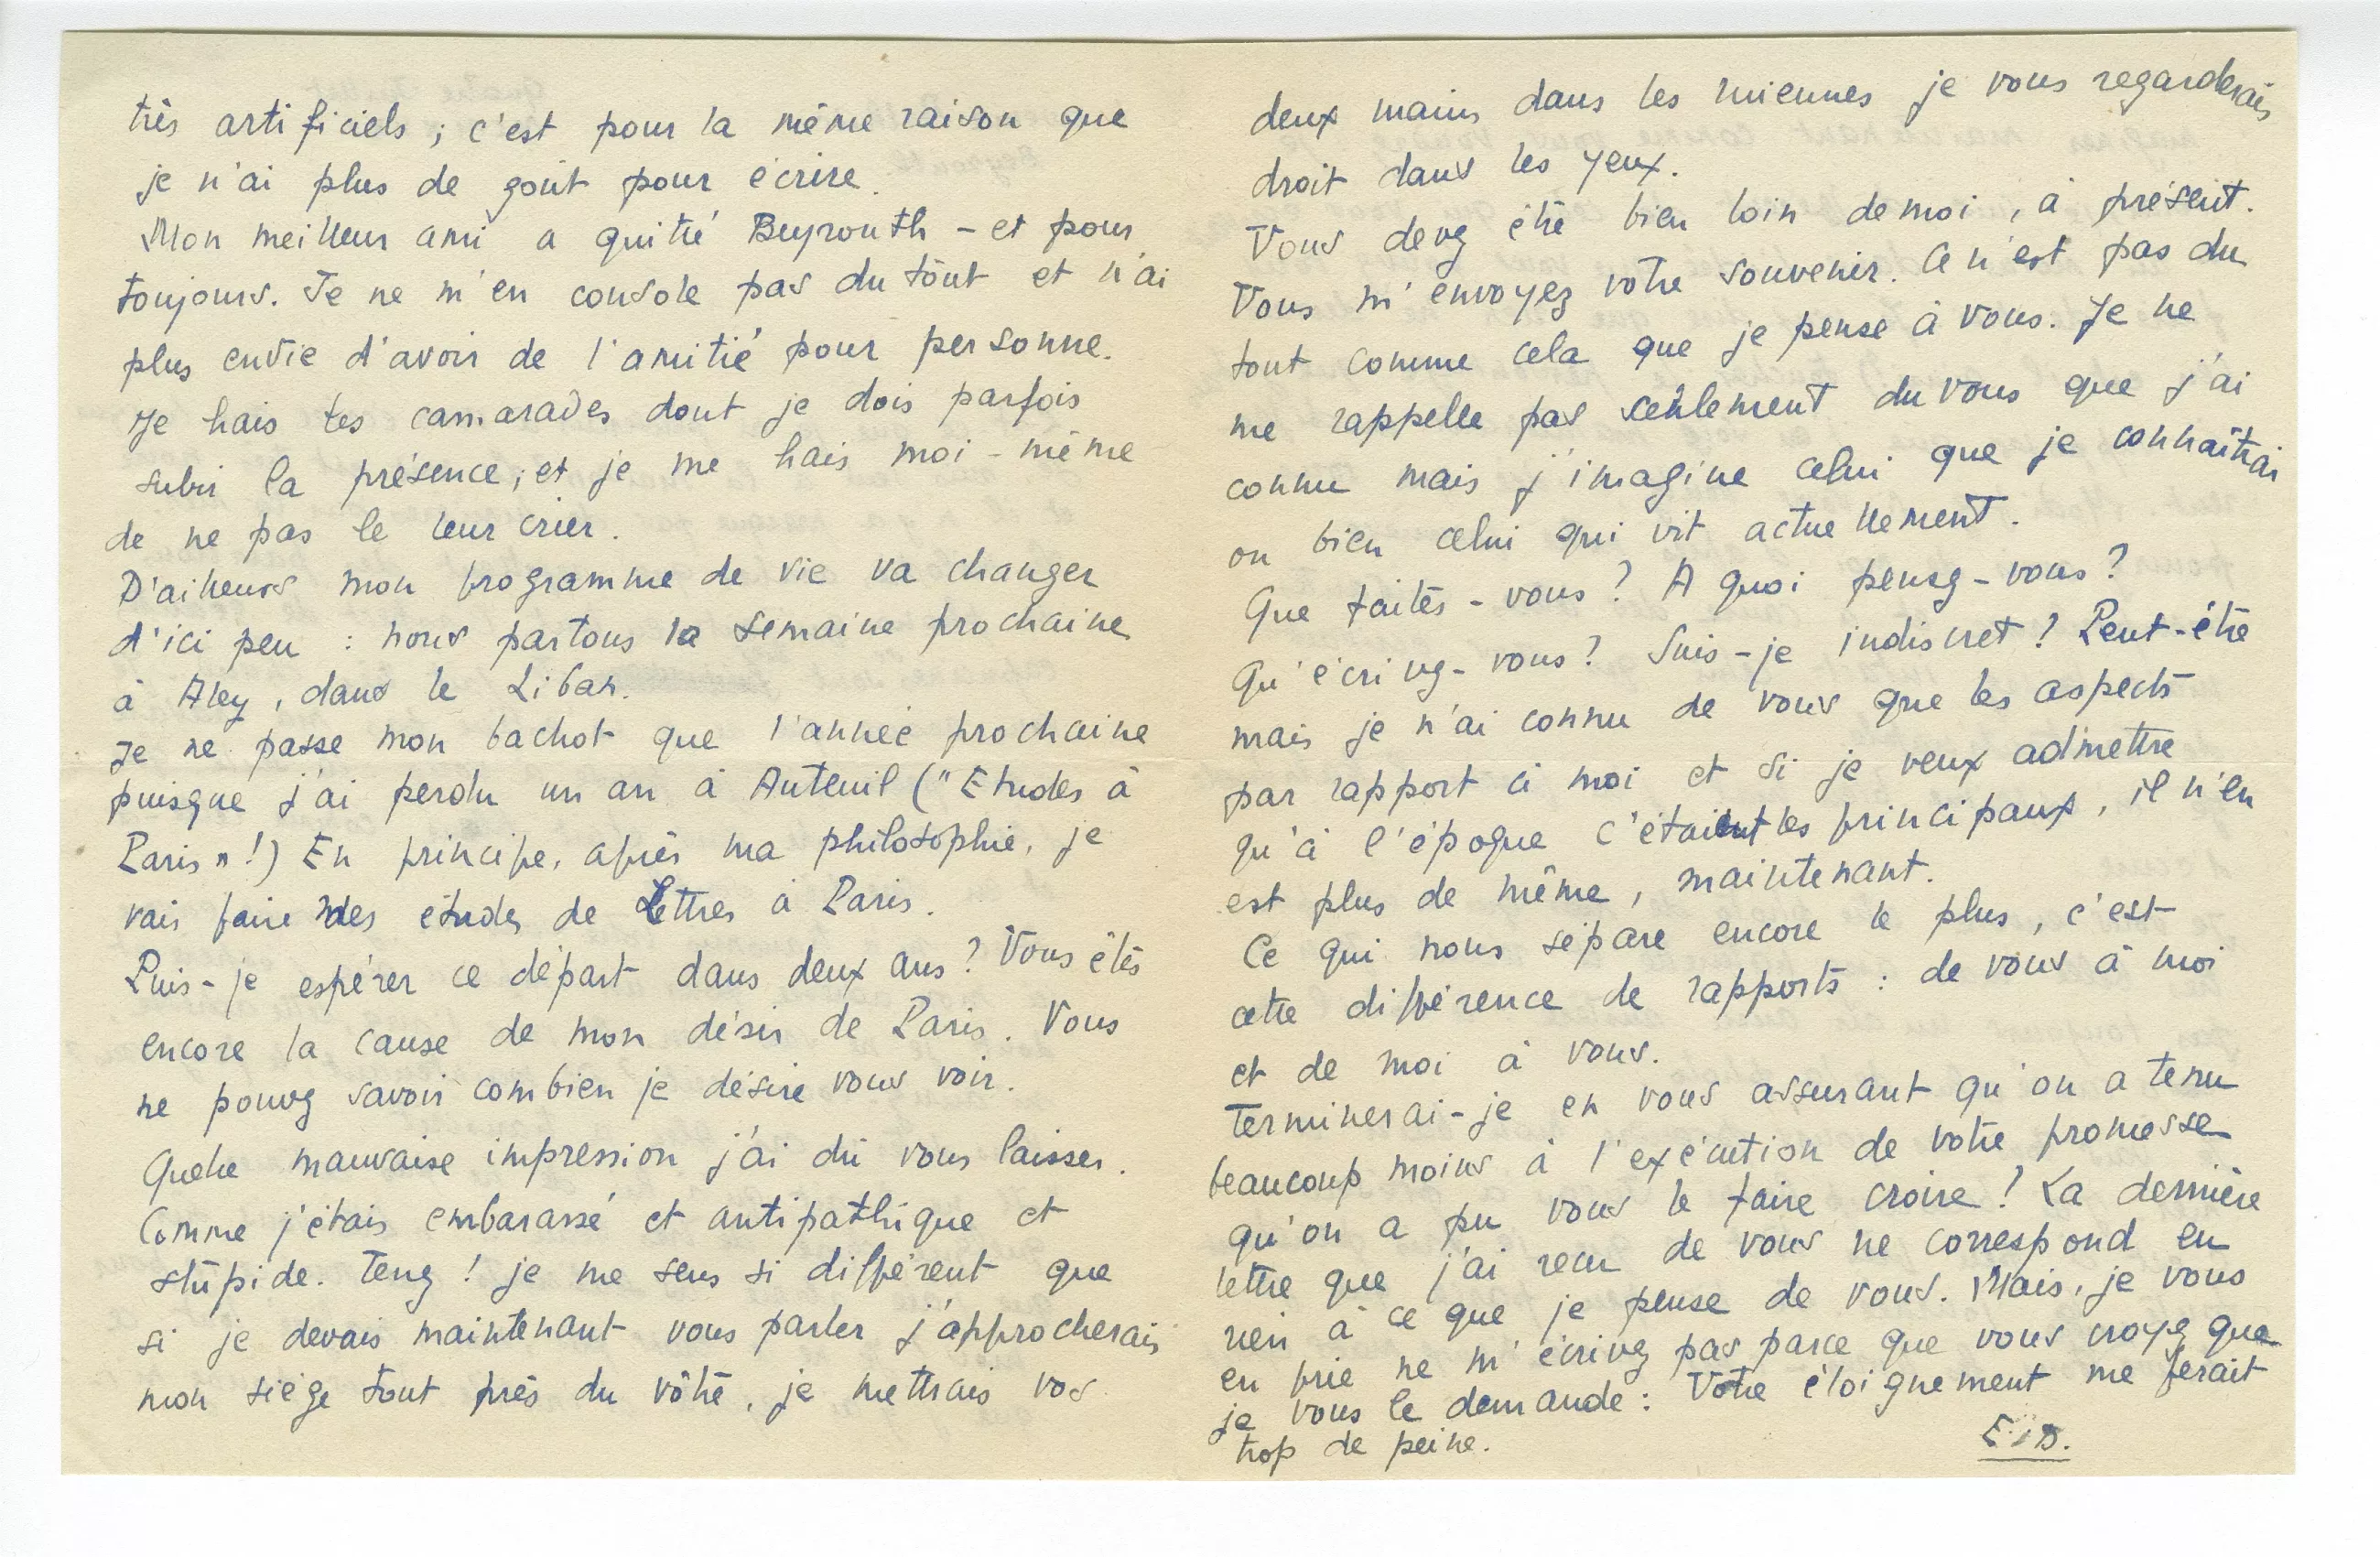 très artificiels ; c'est pour la même raison que
je n'ai plus de goût pour écrire.
Mon meilleur ami a quitté Beyrouth - et pour
toujours. Je ne m'en console pas du tout et n'ai
plus envie d'avoir de l'amitié pour personne.
Je hais les camarades dont je dois parfois
subir la présence ; et je me hais moi-même
de ne pas le leur crier.
D'ailleurs mon programme de vie va changer
d'ici peu : nous partons la semaine prochaine
à Aley, dans le Liban.
Je ne passe mon bachot que l'année prochaine
puisque j'ai perdu un an à Auteuil ("Etudes à
Paris" !) En principe, après ma philosophie, je
vais faire des études de Lettres à Paris.
Puis-je espérer ce départ dans deux ans ? Vous êtes
encore la cause de mon désir de Paris. Vous
ne pouvez savoir combien je désire vous voir.
Quelle mauvaise impression j'ai dû vous laisser.
Comme j'étais embarassé et antipathique et
stupide. Tenez ! je me sens si différent que
si je devais maintenant vous parler j'approcherais
mon siège tout près du vôtre, je mettrais vos
deux mains dans les miennes je vous regarderais
droit dans les yeux.
Vous devez être bien loin de moi, à présent.
Vous m'envoyez votre souvenir. Ce n'est pas du
tout comme cela que je pense à vous. Je ne
me rappelle pas seulement du vous que j'ai
connu mais j'imagine celui que je connaîtrai
ou bien celui qui vit actuellement.
Que faites-vous ? A quoi pensez-vous ?
Qu'écrivez-vous ? Suis-je indiscret ? Peut-être
mais je n'ai connu de vous que les aspects
par rapport à moi et si je veux admettre
qu'à l'époque c'étaient les principaux, il n'en
est plus de même, maintenant.
Ce qui nous sépare encore le plus, c'est
cette différence de rapports : de vous à moi
et de moi à vous.
Terminerai-je en vous assurant qu'on a tenu
beaucoup moins à l'exécution de votre promesse
qu'on a pu vous le faire croire ! La dernière
lettre que j'ai reçu de vous ne correspond en
rien à ce que je pense de vous. Mais, je vous
en prie ne m'écrivez pas parce que vous croyez que
je vous le demande : Votre éloignement me ferait
trop de peine.
E.D.